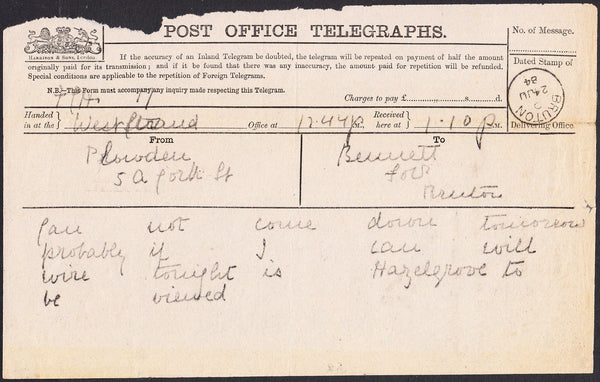 POST OFFICE TELEGRAPHS.
Harrison & Sons, London
If the accuracy of an Inland Telegram be doubted, the telegram will be repeated on payment of half the amount
originally paid for its transmission; and if it be found that there was any inaccuracy, the amount paid for repetition will be refunded.
Special conditions are applicable to the repetition of Foreign Telegrams.
N.B.—This Form must accompany any inquiry made respecting this Telegram.
No. of Message.
Dated Stamp of
BRUTON
24 JU
84
Delivering Office.
Charges to pay £ s. d.
Handed in at the West Strand Office at 12.44 p M. Received here at 1.10 p M.
From
To
Plowden
5 A York St
Bennett
Bruton
Can not come down tomorrow
probably if I can will
wire tonight is Hazelgrove to
be viewed